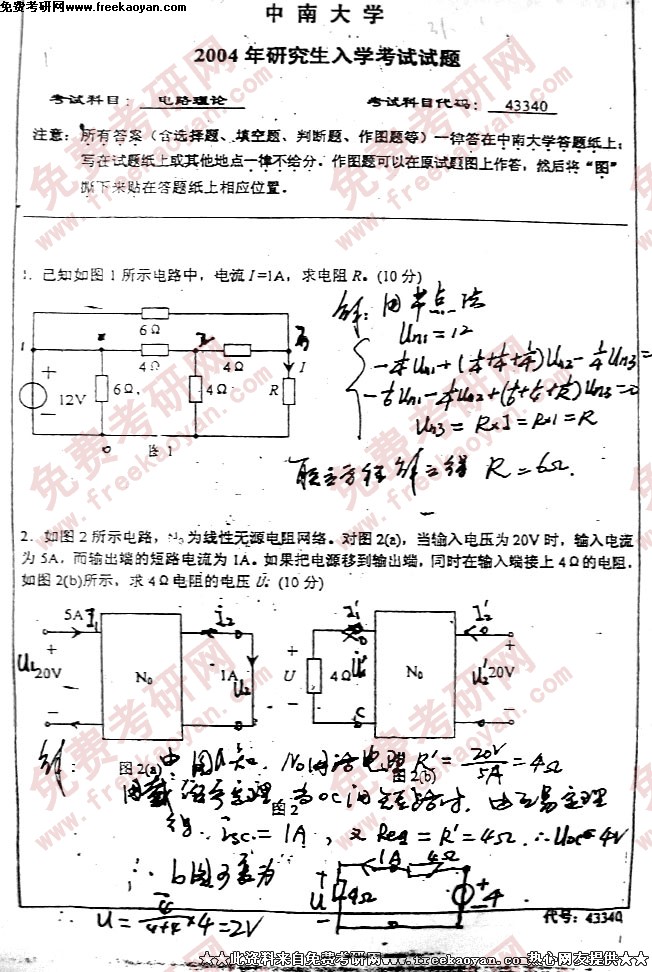 免费考研网
www.freekaoyan.com
中南大学
2004年研究生入学考试试题
考试科目： 电路理论 考试科目代码： 43340
注意：所有答案（含选择题、填空题、判断题、作图题等）一律答在中南大学答题纸上；
写在试题纸上或其他地点一律不给分。作图题可以在原试题图上作答，然后将“图”
撕下来贴在答题纸上相应位置。
1．已知如图1所示电路中，电流I=1A，求电阻R。(10分)
解：用节点法
Un1=12
-¼Un1+(¼+¼+¼)Un2-¼Un3=
-⅙Un1-¼Un2+(⅙+¼+1/R)Un3=0
Un3=R×I=R×1=R
联立方程 解之得 R=6Ω.
6Ω
4Ω 4Ω I
+ 12V - 6Ω 4Ω R
图1
2．如图2所示电路，N₀为线性无源电阻网络。对图2(a)，当输入电压为20V时，输入电流
为5A，而输出端的短路电流为1A。如果把电源移到输出端，同时在输入端接上4Ω的电阻．
如图2(b)所示，求4Ω电阻的电压U. (10分)
5A I₁ i₂ I₁' I₂'
+ U₁ 20V - N₀ 1A U₂ + U - 4Ω N₀ U₂' + 20V -
图2(a) 图2(b)
图2
解： 由图a知，N₀ 电阻R'=20V/5A=4Ω
用戴 定理，当oc间短路时，由互易定理
得 isc=1A，又Req=R'=4Ω ∴Uoc=4V
∴ b图可 为
1A 4Ω
U 4Ω + 4 -
∴ U=4/(4+4)×4=2V
代号：43340
★★此资料来自免费考研网www.freekaoyan.com热心网友提供★★